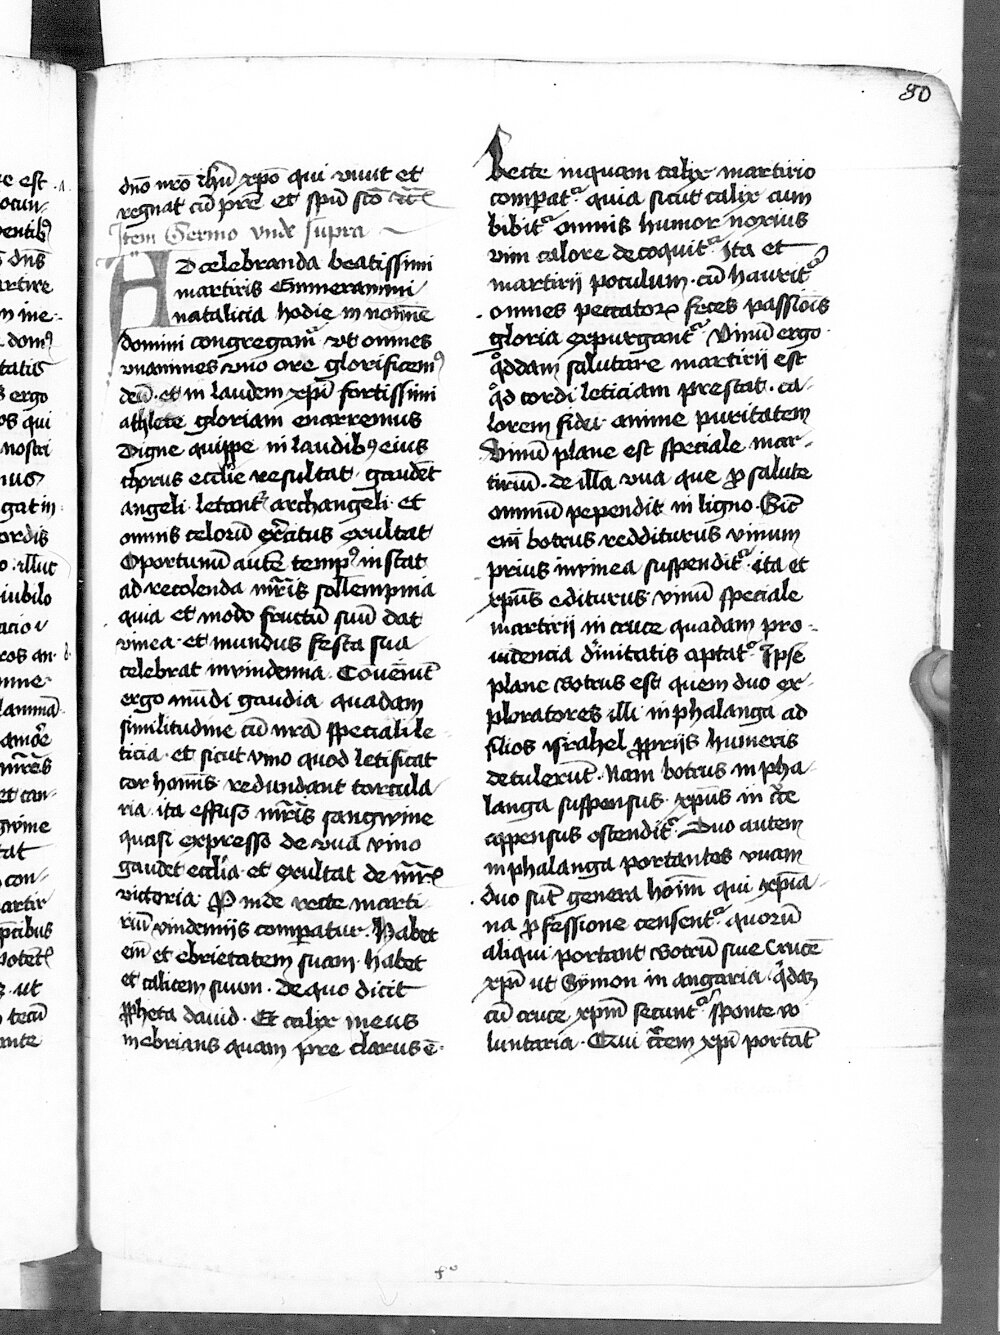 80
dno nro ihu xpo qui viuit et
regnat cu pre et spu sco
Item Sermo vnde supra
AD celebranda beatissimi
martiris Emmerammi
natalicia hodie in nomine
domini congregamur vt omnes
vnanimes vno ore glorificemus
deu et in laudem xpi fortissimi
athlete gloriam enarremus
Digne quippe in laudibus eius
chorus ecclie resultat gaudet
angeli letant archangeli et
omnis celoru exercitus exultat
Oportunu aute tempus instat
ad recolenda mris sollempnia
quia et modo fructu suu dat
vinea et mundus festa sua
celebrat in vindemia Coueniut
ergo mudi gaudia quadam
similitudine cu nra speciali le
ticia et sicut vino quod letificat
cor hominis redundant torcula
ria ita effuso mris sangwine
quasi expresso de vua vino
gaudet ecclia et exultat de mris
victoria Proinde recte marti
riu vindemijs comparatur Habet
em et ebrietatem suam habet
et calicem suum De quo dicit
ppheta dauid Et calix meus
inebrians quam pre clarus e
Recte inquam calix martirio
comparat quia sicut calix cum
bibitur omnis humor noxius
vini calore decoquitur Ita et
martirij poculum cu hauritur
omnes peccatorum feces passiois
gloria expurgantur Vinu ergo
qddam salutare martirij est
qd cordi leticiam prestat ca
lorem fidei anime puritatem
Vinu plane est speciale mar
tiriu de illa vua que pro salute
omniu pependit in ligno Sic
em botrus redditurus vinum
prius in vinea suspenditur ita et
xpus editurus vinu speciale
martirij in cruce quadam pro
uidencia diuinitatis aptatur Ipse
plane botrus est quem duo ex
ploratores illi in phalanga ad
filios israhel pprijs humeris
detulerut Nam botrus in pha
langa suspensus xpus in cruce
appensus ostenditur Duo autem
in phalanga portantes vuam
duo sut genera hoim qui xpia
na professione censentur quoru
aliqui portant botru siue Cruce
xpi ut Symon in angaria quidam
cu cruce xpm secuntur sponte vo
luntaria Qui crucem xpi portat